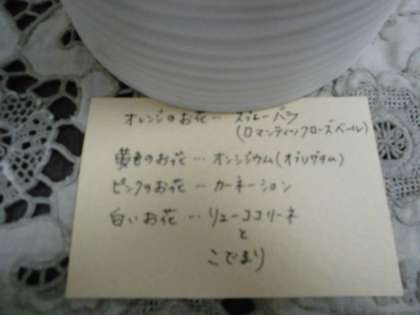 オレンジのお花… スプレーバラ
(ロマンティックローズベール)
黄色のお花… オンシジウム(オブリザタム)
ピンクのお花… カーネーション
白いお花… リューココリーネ
と
こでまり